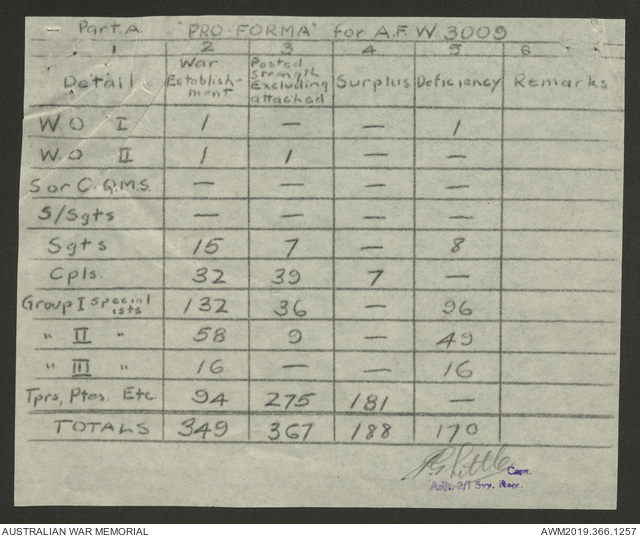 Part A. 'PRO-FORMA' for A.F.W. 3009
1 2 3 4 5 6
Detail War Establish-ment Posted Strength Excluding attached Surplus Deficiency Remarks
W.O I 1 — — 1
W.O II 1 1 — —
S or C.Q.M.S. — — — —
S/Sgts — — — —
Sgts 15 7 — 8
Cpls. 32 39 7 —
Group I specialists 132 36 — 96
" II " 58 9 — 49
" III " 16 — — 16
Tprs, Ptes. Etc 94 275 181 —
TOTALS 349 367 188 170
Little Capt.
Adjt. 2/1 Svy.
AUSTRALIAN WAR MEMORIAL AWM2019.366.1257